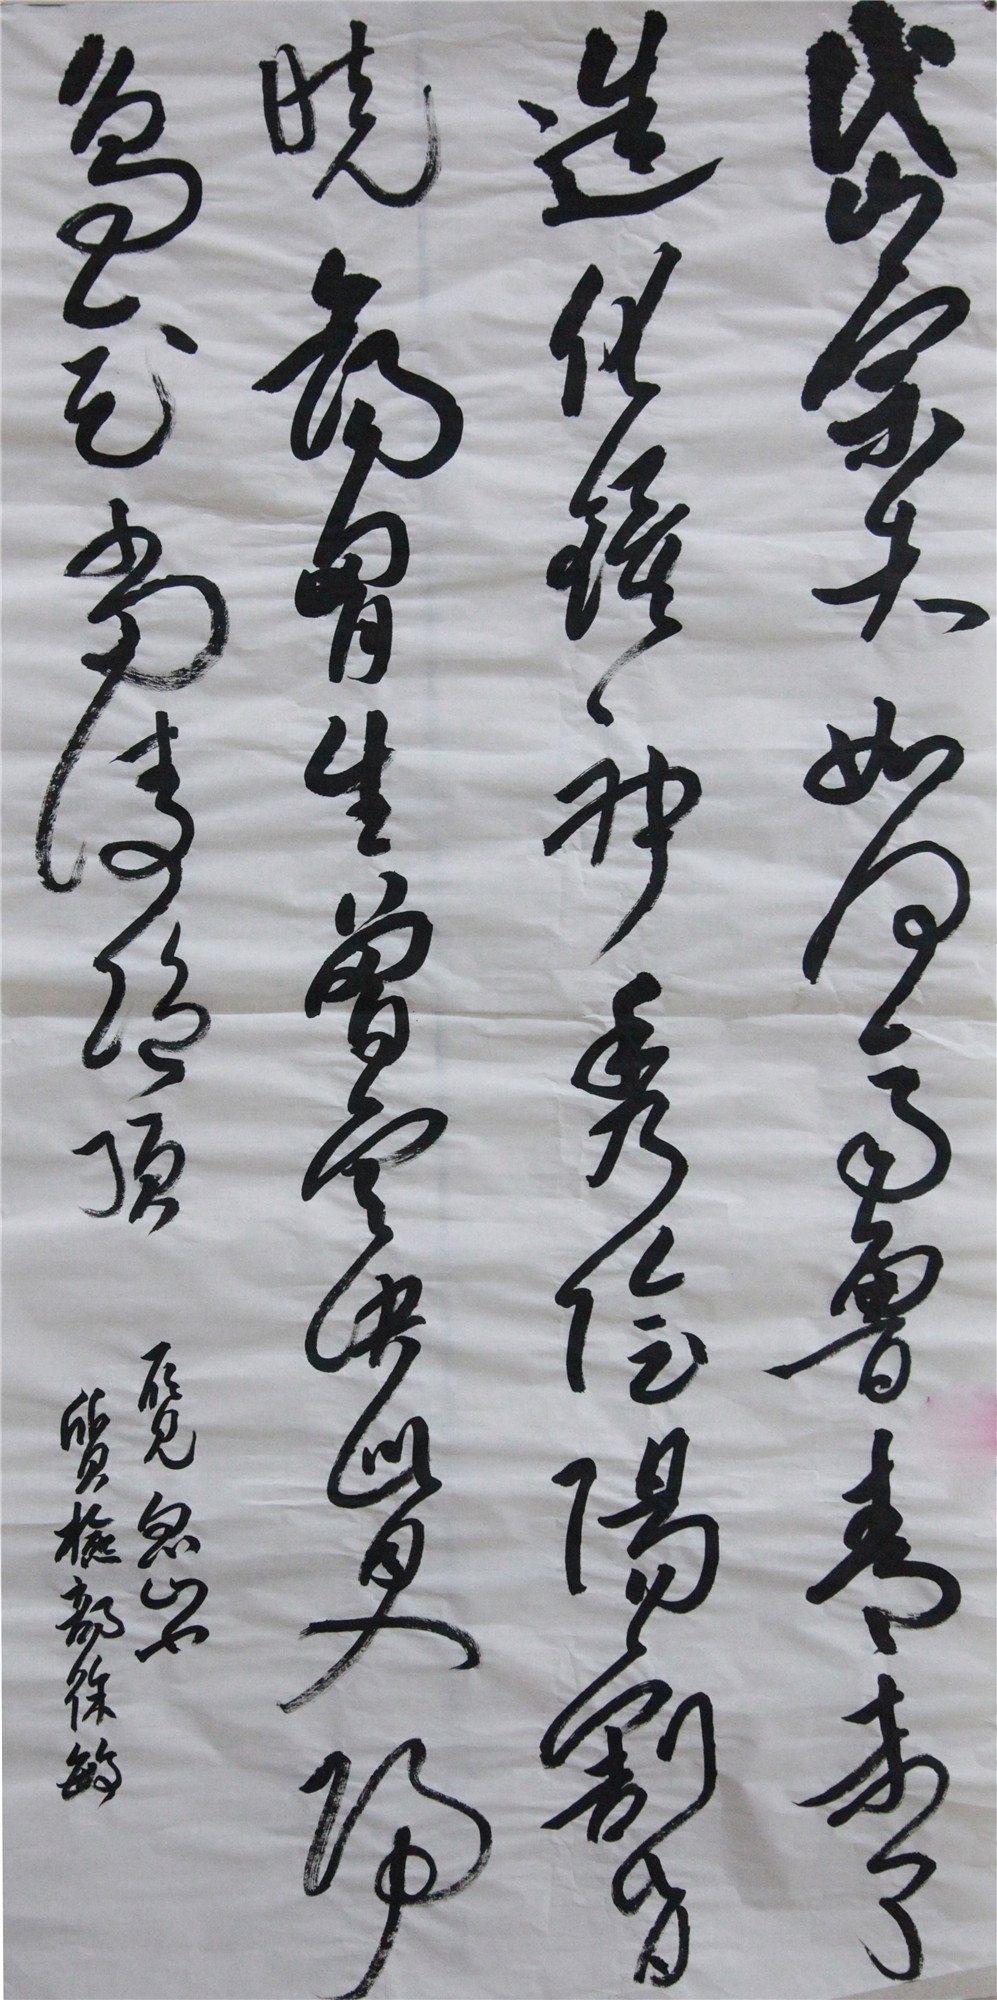 岱宗夫如何齊魯青未了
造化鍾神秀陰陽割昏
曉蕩胸生曾雲決眥入歸
鳥會當凌絕頂
一覽眾山小
質檢部徐敏